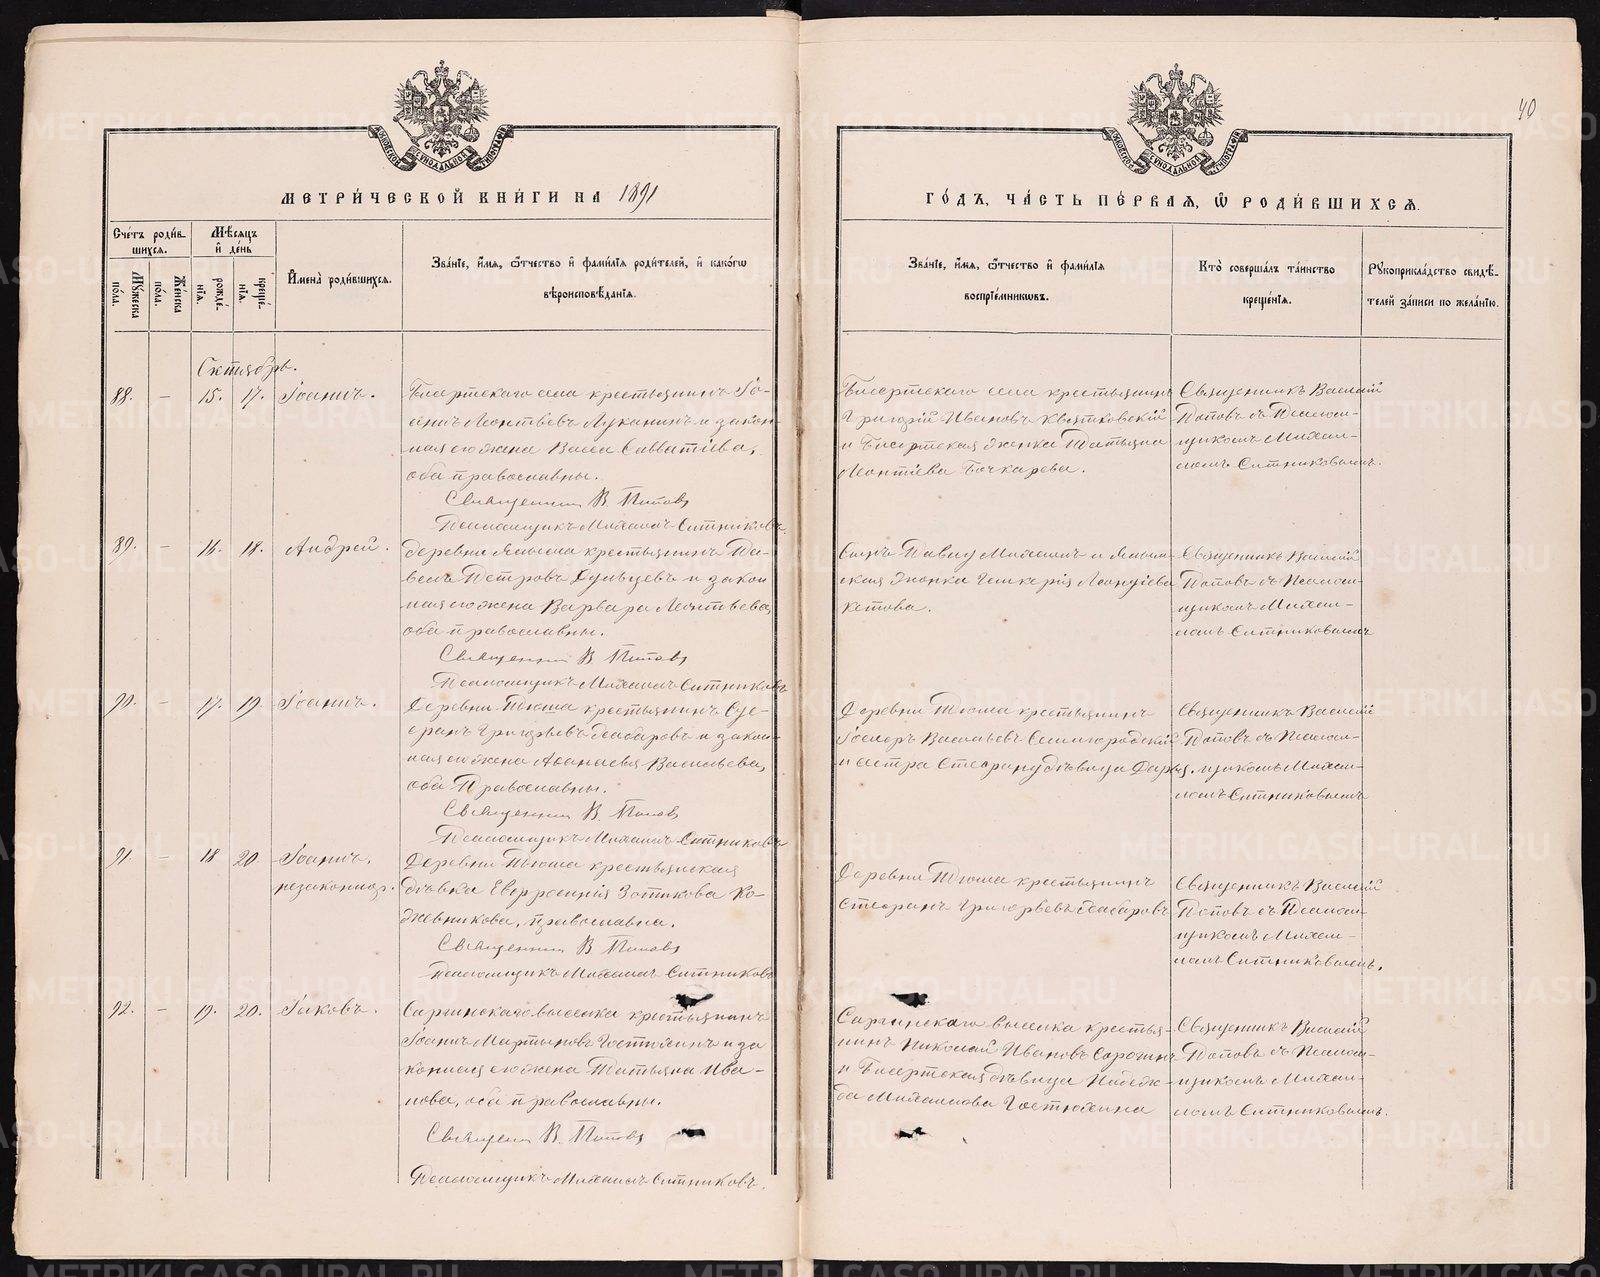 40
МЕТРИ́ЧЕСКОЙ КНИ́ГИ НА 1891
ГО́ДЪ, ЧА́СТЬ ПЕ́РВАЯ, Ѡ РОДИ́ВШИХСЯ.
МОСКОВСКОЙ СѴНОДАЛЬНОЙ ТИПОГРАФІИ
Сче́тъ роди́в-
шихся.
Му́жеска по́ла.
Же́нска по́ла.
Мѣ́сяцъ
и де́нь
рожде́-
нїя.
креще́-
нїя.
Имена̀ роди́вшихся.
Зва́нїе, и́мя, ѻ́тчество и фами́лїя роди́телей, и како́гѡ
вѣроисповѣ́данїя.
Зва́нїе, и́мя, ѻ́тчество и фами́лїя
воспрїе́мникѡвъ.
Кто̀ соверша́лъ та́инство
креще́нїя.
Рукоприкла́дство свидѣ́-
телей за́писи по жела́нїю.
Октябрь.
88. – 15. 17. Іоаннъ.
Бисертскаго села крестьянинъ Іо-
аннъ Леонтьевъ Луканинъ и закон-
ная его жена Васса Савватіева,
оба православны.
Священник В Попов
Псаломщикъ Михаилъ Ситниковъ
Бисертскаго села крестьянинъ
Григорій Ивановъ
и Бисертская женка Татьяна
Леонтіева Бочкарева.
Священникъ Василій
Поповъ съ Псалом-
щикомъ Михаи-
ломъ Ситниковымъ.
89. – 16. 18. Андрей.
деревни крестьянинъ Па-
велъ Петровъ и закон
ная его жена Варвара Леонтьева,
оба православны.
Священник В Попов
Псаломщикъ Михаилъ Ситниковъ
женка Гликерія
Священникъ Василій
Поповъ съ Псалом-
щикомъ Михаи-
ломъ Ситниковымъ
90. – 17. 19. Іоаннъ.
Деревни Тюша крестьянинъ Сте-
фанъ Григорьевъ и закон-
ная его жена Афанасія Васильева,
оба Православны.
Священник В. Попов
Псаломщикъ Михаилъ Ситниковъ
Деревни Тюша крестьянинъ
Васильевъ
и сестра Стефану дѣвица Дарья.
Священникъ Василій
Поповъ съ Псалом-
щикомъ Михаи-
ломъ Ситниковымъ
91. – 18 20. Іоаннъ.
незаконнор.
Деревни Тюша крестьянская
дѣвка Евфросинія Зотикова Ко-
жевникова, православна.
Священник В Попов
Псаломщикъ Михаилъ Ситниковъ
Деревни Тюша крестьянинъ
Стефанъ Григорьевъ
Священникъ Василій
Поповъ съ Псалом-
щикомъ Михаи-
ломъ Ситниковымъ.
92. – 19. 20. Іаковъ.
Саргинскаго выселка крестьянинъ
Іоаннъ Мартыновъ Гостюхинъ и за
конная его жена Татьяна Ива-
нова, оба православны.
Священник В. Попов
Псаломщикъ Михаилъ Ситниковъ.
Саргинскаго выселка крестья-
нинъ Николай Ивановъ Сорокинъ
и Бисертская дѣвица Надеж-
да Михаилова Гостюхина
Священникъ Василій
Поповъ съ Псалом-
щикомъ Михаи-
ломъ Ситниковымъ.
METRIKI.GASO-URAL.RU